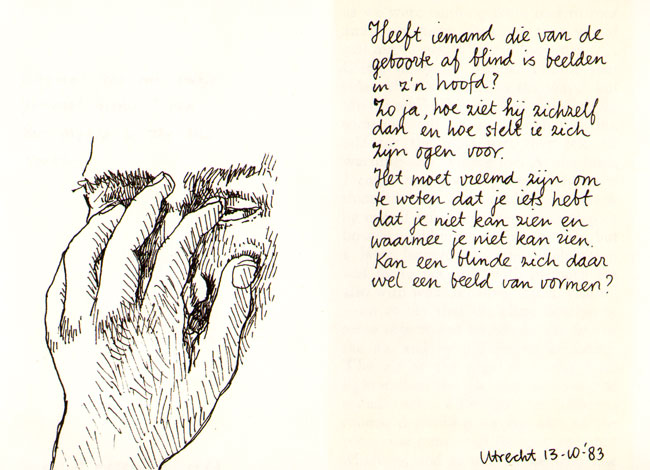 Heeft iemand die van de
geboorte af blind is beelden
in z'n hoofd?
Zo ja, hoe ziet hij zichzelf
dan en hoe stelt ie zich
zijn ogen voor.
Het moet vreemd zijn om
te weten dat je iets hebt
dat je niet kan zien en
waarmee je niet kan zien.
Kan een blinde zich daar
wel een beeld van vormen?
Utrecht 13-10-'83